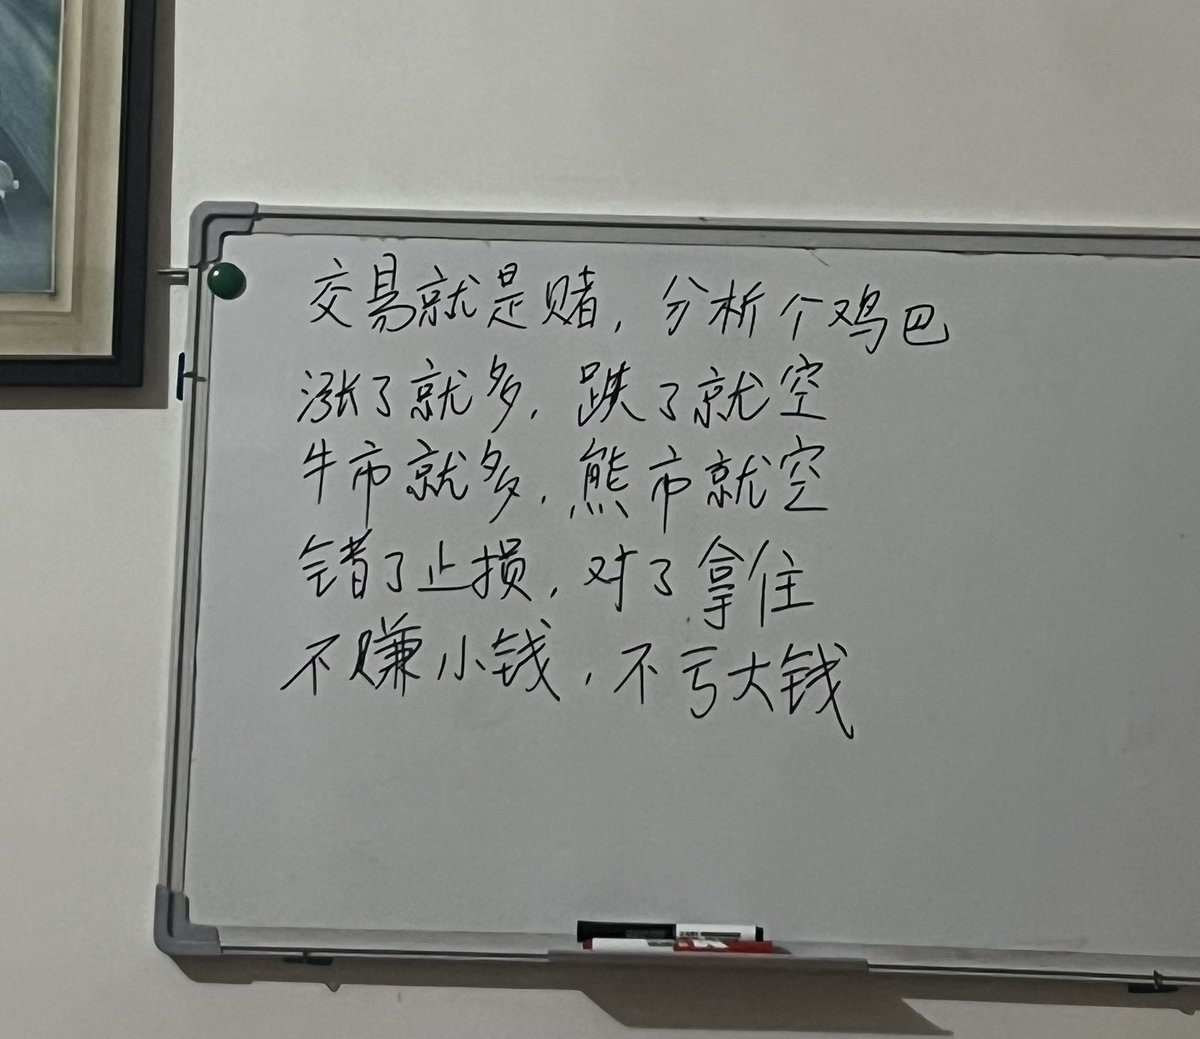 交易就是赌，分析个鸡巴
涨了就多，跌了就空
牛市就多，熊市就空
错了止损，对了拿住
不赚小钱，不亏大钱